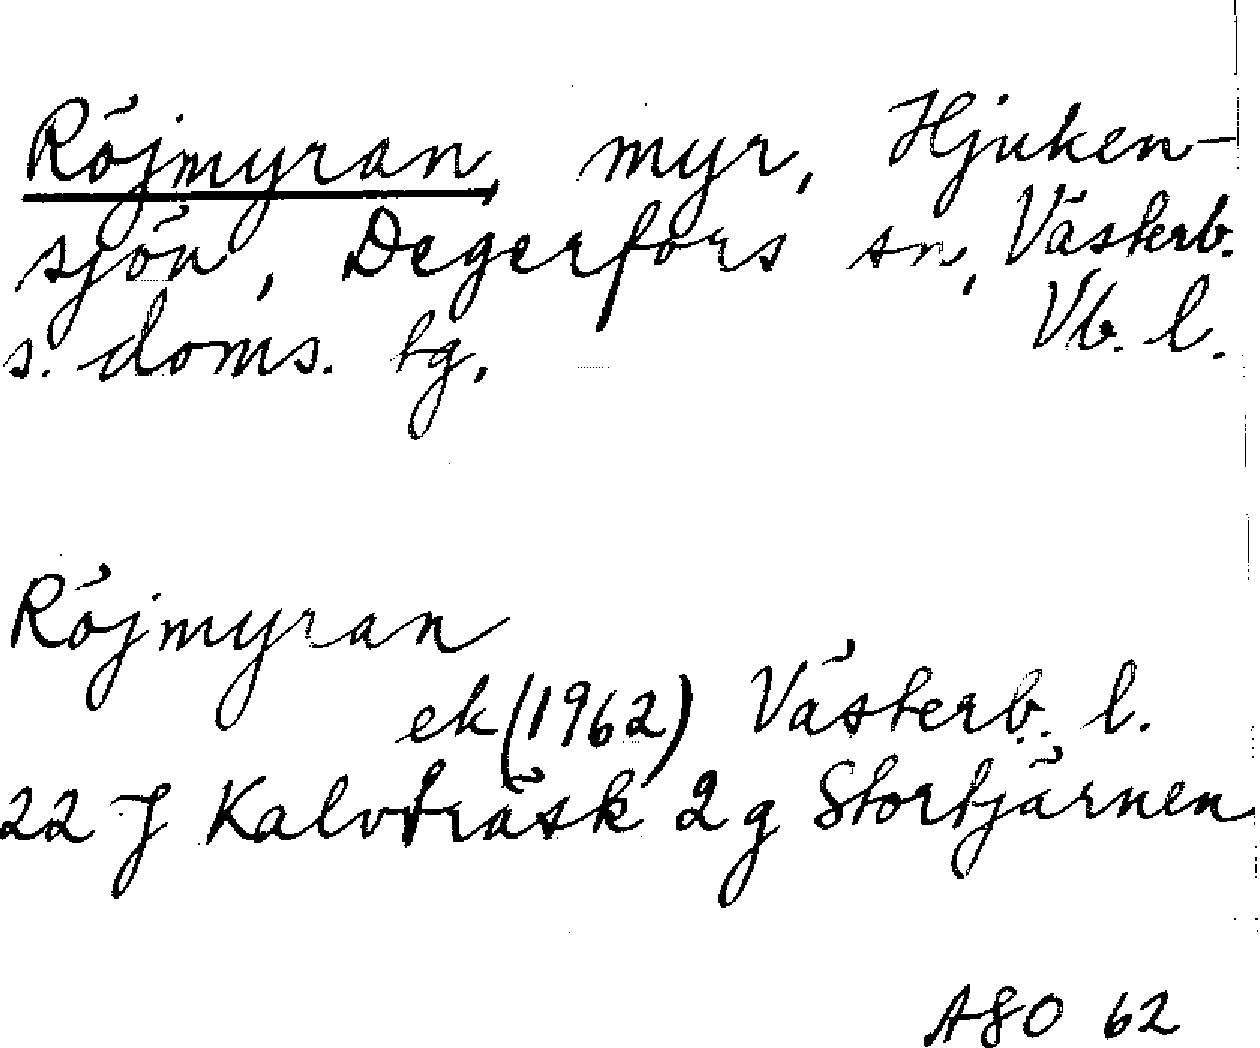 Röjmyran, myr, Hjuken-
sjön, Degerfors sn, Västerb.
s. doms. tg, Vb. l.
Röjmyran
ek (1962) Västerb. l.
22 J Kalvträsk 2 g Stortjärnen
ASO 62